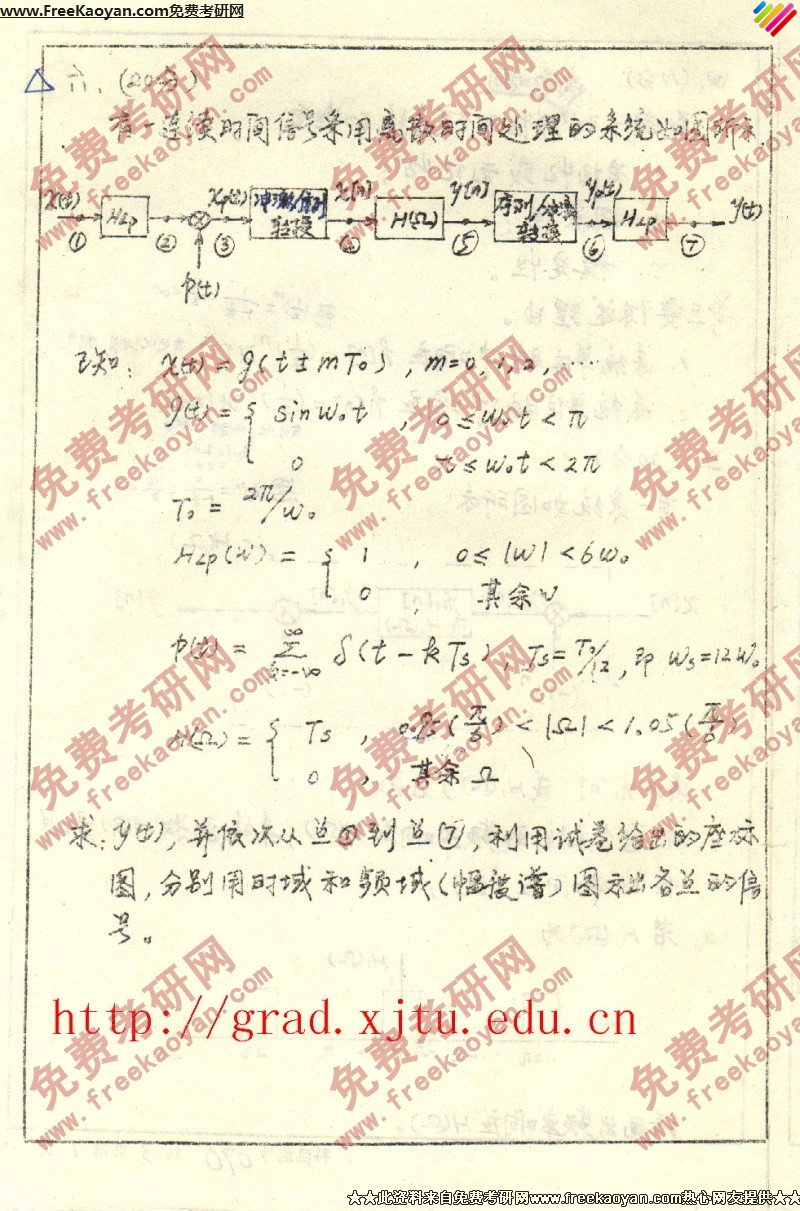 www.FreeKaoyan.com免费考研网
六、(20分)
有一连续时间信号采用离散时间处理的系统如图所示
x(t) ① HLP ② xp(t) ③ 冲激/序列转换 x[n] ④ H(Ω) y[n] ⑤ 序列/冲激转换 yp(t) ⑥ HLP ⑦ y(t)
p(t)
已知: x(t) = g(t±mT₀), m=0, 1, 2, ……
g(t) = { sinω₀t , 0≤ω₀t<π
0 π≤ω₀t<2π
T₀ = 2π/ω₀
HLP(ω) = { 1 , 0≤|ω|<6ω₀
0 , 其余ω
p(t) = ∑ δ(t-kTs), Ts=T₀/12, 即 ωs=12ω₀
k=-∞ ∞
H(Ω) = { Ts , 0.95(π/6)<|Ω|<1.05(π/6)
0 , 其余Ω
求: y(t), 并依次从点①到点⑦, 利用试卷给出的座标
图, 分别用时域和频域(幅度谱)图示出各点的信
号。
http://grad.xjtu.edu.cn
免费考研网
www.freekaoyan.com
★★此资料来自免费考研网www.freekaoyan.com热心网友提供★★